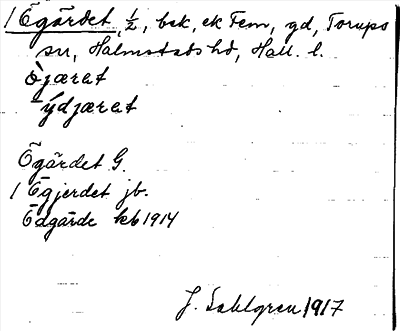 1 Ögärdet, 1/2, bsk, ek Fem, gd, Torups
sn, Halmstads hd, Hall. l.
öjæret
-ýdjæret
Ögärdet G.
1 Ögjerdet jb.
Ödgärde kb 1914
J. Sahlgren 1917